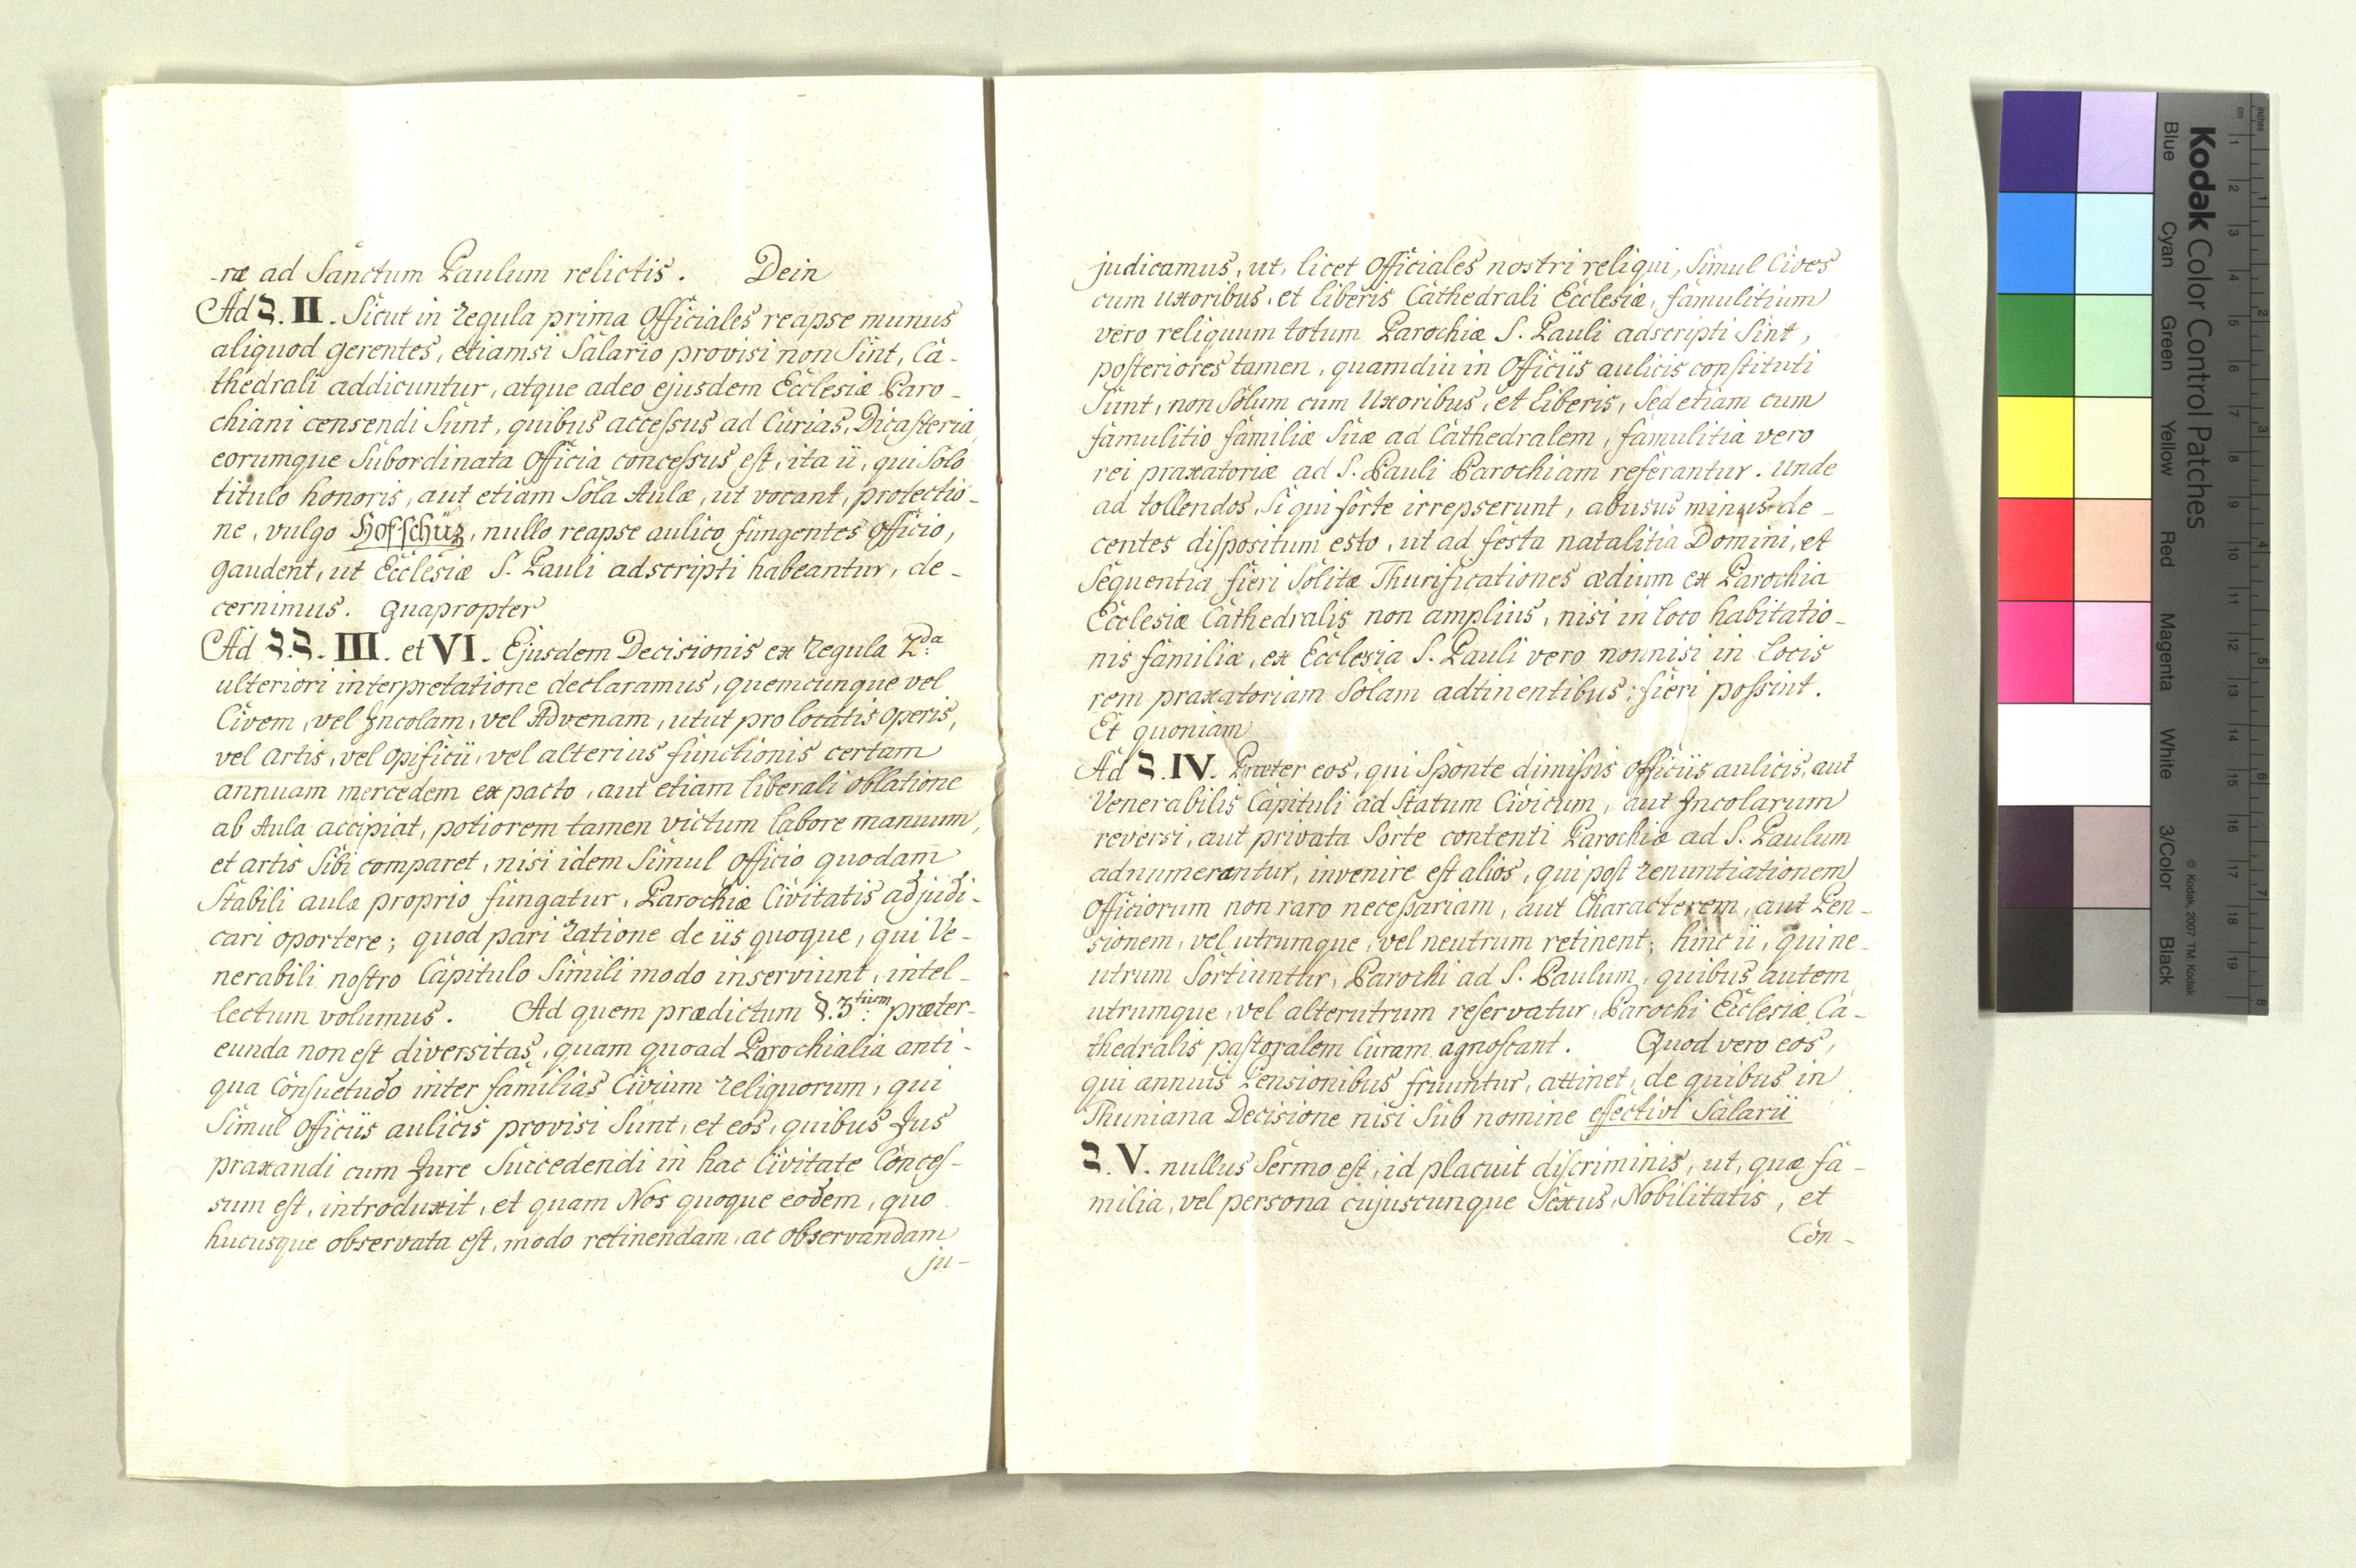 -ræ ad Sanctum Paulum relictis. Dein
Ad §. II. Sicut in regula prima Officiales reapse munus
aliquod gerentes, etiamsi Salario provisi non Sint, Ca-
thedrali addicuntur, atque adeo ejusdem Ecclesiæ Paro-
chiani censendi Sunt, quibus accessus ad Curias, Dicasteria,
eorumque Subordinata Officia concessus est, ita ii, qui Solo
titulo honoris, aut etiam Sola Aulæ, ut vocant, protectio-
ne, vulgo Hofschüz, nullo reapse aulico fungentes Officio,
gaudent, ut Ecclesiæ S. Pauli adscripti habeantur, de-
cernimus. Quapropter
Ad §.§. III. et VI. Ejusdem Decisionis ex regula 2da
ulteriori interpretatione declaramus, quemcunque vel
Civem, vel Incolam, vel Advenam, utut pro locatis operis,
vel artis, vel opificii, vel alterius functionis certam
annuam mercedem ex pacto, aut etiam liberali oblatione
ab Aula accipiat, potiorem tamen victum labore manuum,
et artis Sibi comparet, nisi idem Simul Officio quodam
Stabili aulæ proprio fungatur, Parochiæ Civitatis adjudi-
cari oportere; quod pari ratione de iis quoque, qui Ve-
nerabili nostro Capitulo Simili modo inserviunt, intel-
lectum volumus. Ad quem prædictum §. 3tium præter-
eunda non est diversitas, quam quoad Parochialia anti-
qua Consuetudo inter familias Civium reliquorum, qui
Simul Officiis aulicis provisi Sunt, et eos, quibus Jus
praxandi cum Jure Succedendi in hac Civitate Conces-
sum est, introduxit, et quam Nos quoque eodem, quo
hucusque observata est, modo retinendam, ac observandam
ju-
judicamus, ut, licet Officiales nostri reliqui, Simul Cives
cum uxoribus, et liberis Cathedrali Ecclesiæ, famulitium
vero reliquum totum Parochiæ S. Pauli adscripti Sint,
posteriores tamen, quamdiu in Officiis aulicis constituti
Sunt, non Solum cum Uxoribus, et liberis, Sed etiam cum
famulitio familiæ Suæ ad Cathedralem, famulitia vero
rei praxatoriæ ad S. Pauli Parochiam referantur. Unde
ad tollendos, Si qui forte irrepserunt, abusus minus de-
centes dispositum esto, ut ad festa natalitia Domini, et
Sequentia fieri Solitæ Thurificationes ædium ex Parochia
Ecclesiæ Cathedralis non amplius, nisi in loco habitatio-
nis familiæ, ex Ecclesia S. Pauli vero nonnisi in Locis
rem praxatoriam Solam adtinentibus; fieri possint.
Et quoniam
Ad §. IV. Præter eos, qui Sponte dimissis officiis aulicis, aut
Venerabilis Capituli ad Statum Civicum, aut Incolarum
reversi, aut privata Sorte contenti Parochiæ ad S. Paulum
adnumerantur, invenire est alios, qui post renuntiationem
Officiorum non raro necessariam, aut Characterem, aut Pen-
sionem, vel utrumque, vel neutrum retinent; hinc ii, qui ne-
utrum Sortiuntur, Parochi ad S. Paulum, quibus autem
utrumque, vel alterutrum reservatur, Parochi Ecclesiæ Ca-
thedralis pastoralem Curam agnoscant. Quod vero eos,
qui annuis Pensionibus fruuntur, attinet, de quibus in
Thuniana Decisione nisi Sub nomine effectivi Salarii
§. V. nullus Sermo est, id placuit discriminis, ut, quæ fa-
milia, vel persona cujuscunque Sexus, Nobilitatis, et
Con-
Kodak Color Control Patches
Blue Cyan Green Yellow Red Magenta White 3/Color Black
© Kodak, 2007 TM: Kodak
inches 1 2 3 4 5 6 7 8
cm 1 2 3 4 5 6 7 8 9 10 11 12 13 14 15 16 17 18 19